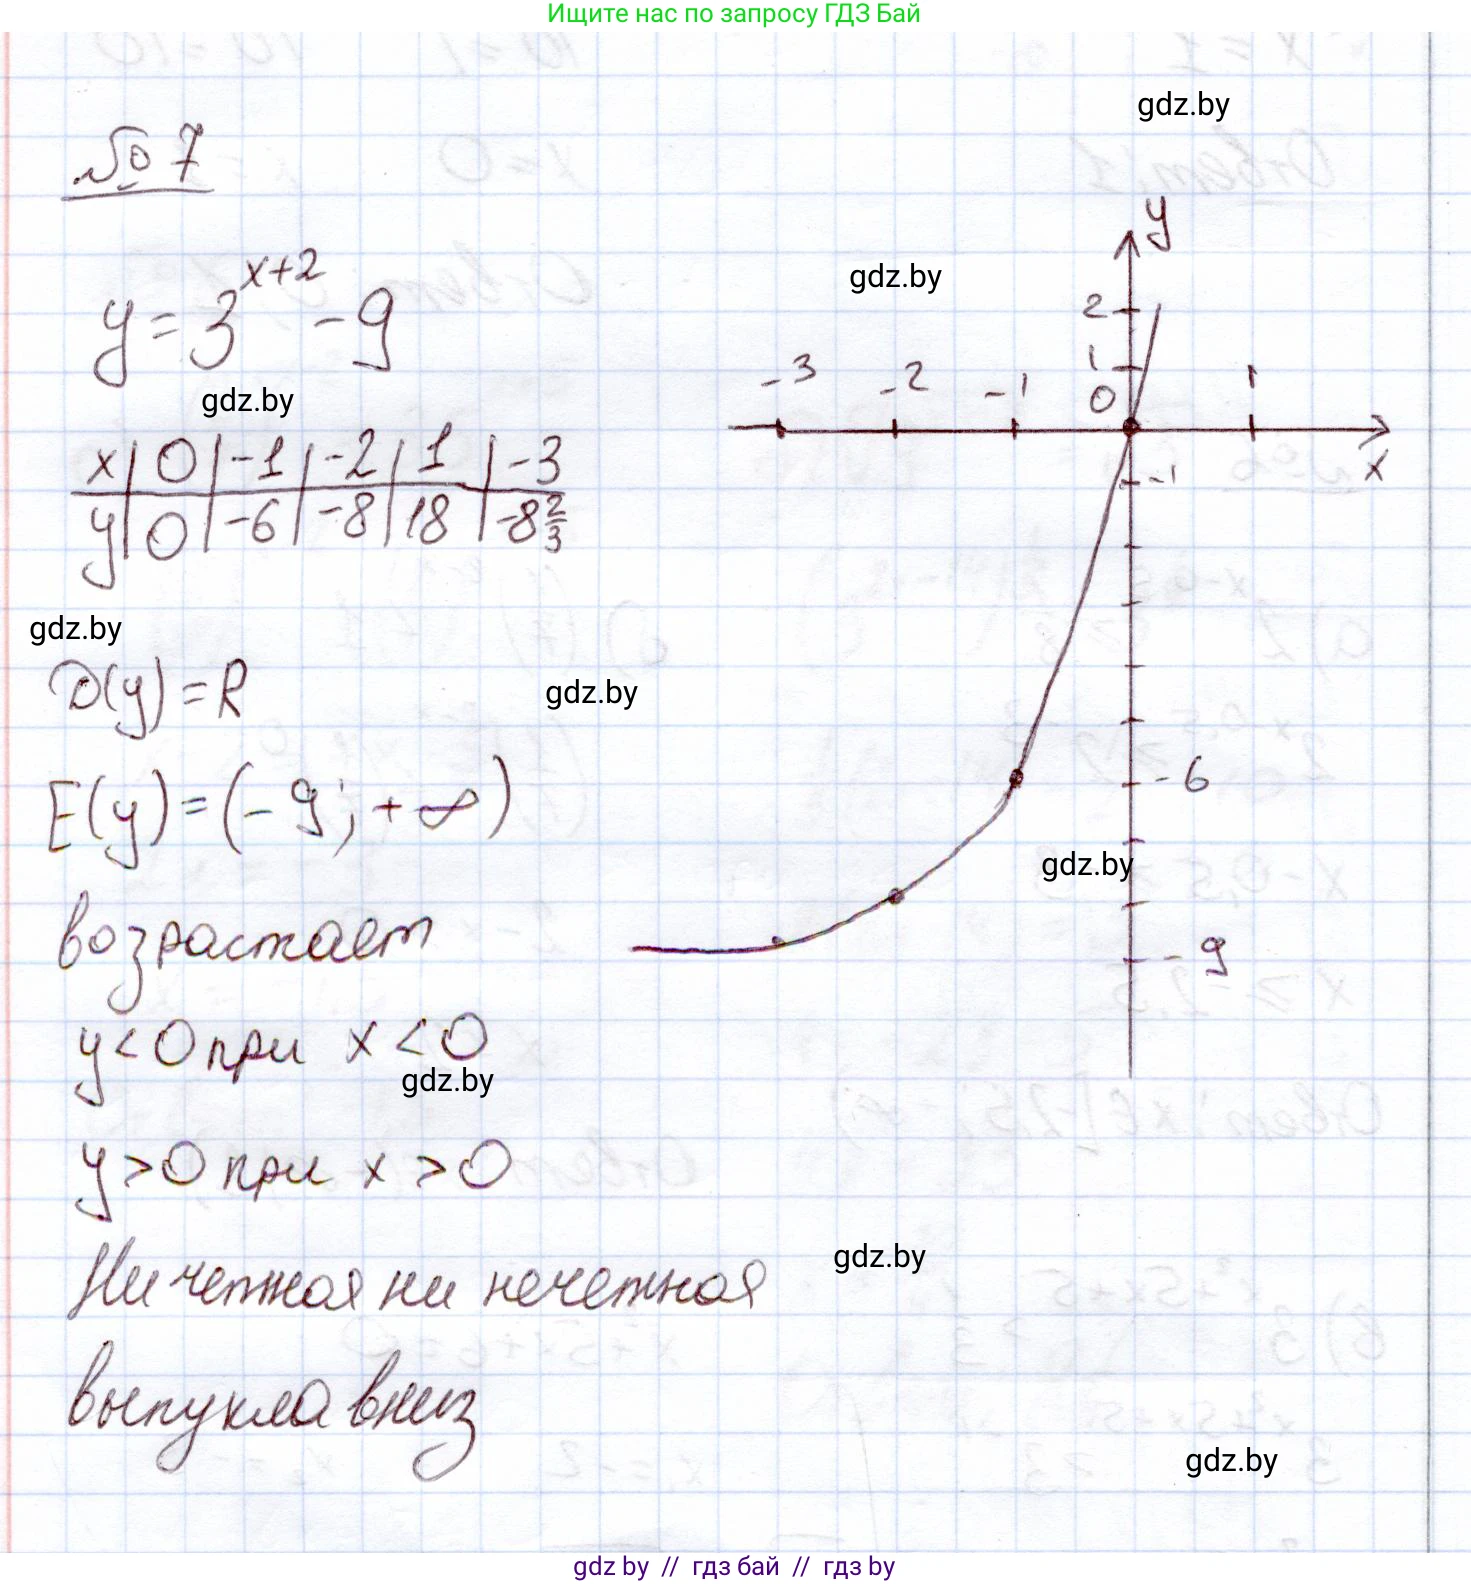 Ищите нас по запросу ГДЗ Бай
gdz.by
№ 7
y = 3^{x+2} - 9
gdz.by
gdz.by
x | 0 | -1 | -2 | 1 | -3
y | 0 | -6 | -8 | 18 | -8 2/3
gdz.by
D(y) = R
gdz.by
E(y) = (-9; +∞)
возрастает
y < 0 при x < 0
gdz.by
y > 0 при x > 0
Ни четная ни нечетная
gdz.by
выпукла вниз
gdz.by
y
2
1
0
-3 -2 -1 1
x
-1
-6
gdz.by
-9
gdz.by // гдз бай // гдз by